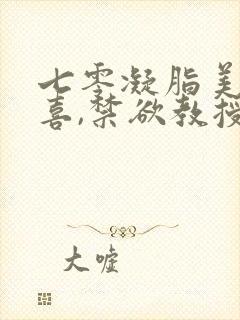 七零凝脂美
喜,禁欲教授
大嘘